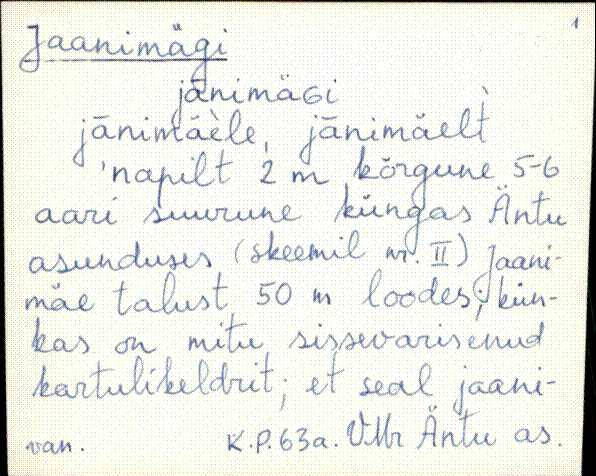 1
Jaanimägi
jānimäGi
jānimäèle, jānimäelt̀
'napilt 2 m kõrgune 5-6
aari suurune küngas Äntu
asunduses (skeemil nr. II) Jaani-
mäe talust 50 m loodes; kün-
kas on mitu sissevarisenud
kartulikeldrit; et seal jaani-
van. K.P. 63a. VMr Äntu as.